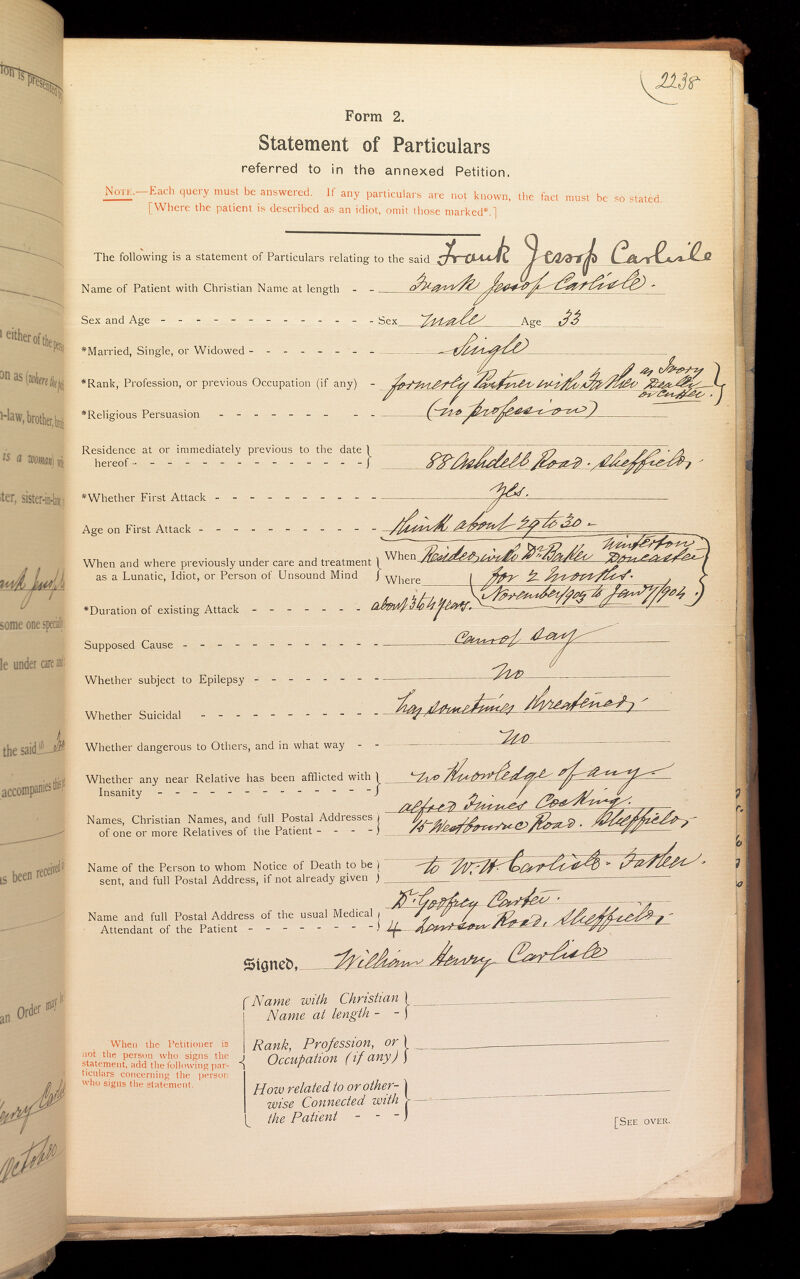 2238
Form 2.
Statement of Particulars
referred to in the annexed Petition.
NOTE.—Each query must be answered. If any particulars are not known, the fact must be so stated.
[Where the patient is described as an idiot, omit those marked*.]
The following is a statement of Particulars relating to the said Frank Jessop Carlisle
Name of Patient with Christian Name at length - - Frank Jessop Carlisle.
Sex and Age - - - - - - - - - - - - - Sex Male Age 33
*Married, Single, or Widowed - - - - - - - Single
*Rank, Profession, or previous Occupation (if any) - formerly Partner with Father as Ivory
Dealer
or cutter.
*Religious Persuasion - - - - - - - - - (no profession)
Residence at or immediately previous to the date
hereof - - - - - - - - - - - - - - 88 Ashdell Road. Sheffield,
*Whether First Attack - - - - - - - - - - Yes.
Age on First Attack - - - - - - - - - - - think about 29 to 30 -
When and where previously under care and treatment
as a Lunatic, Idiot, or Person of Unsound Mind
When Resided with Dr. Winterton
Doncaster
Where for 2 months.
November/1903 to Jany 7/1904.
*Duration of existing Attack - - - - - - - about 3 to 4 years.
Supposed Cause - - - - - - - - - - - Cannot say
Whether subject to Epilepsy - - - - - - - - No
Whether Suicidal - - - - - - - - - - has sometimes threatened,
Whether dangerous to Others, and in what way - - No
Whether any near Relative has been afflicted with
Insanity - - - - - - - - - - - - - no Knowledge of any -
Names, Christian Names, and full Postal Addresses
of one or more Relatives of the Patient - - - -
Alfred Cocking.
15 Westbourne Road. Sheffield,
Name of the Person to whom Notice of Death to be
sent, and full Postal Address, if not already given
to W. H. Carlisle - Father.
Name and full Postal Address of the usual Medical
Attendant of the Patient - - - - - - - -
Dr. Godfrey Carter.
4 Lawson Road, Sheffield,
Signed, William Henry Carlisle
When the Petitioner is
not the person who signs the
statement, add the following par-
ticulars concerning the person
who signs the statement.
Name with Christian
Name at length - -
Rank, Profession, or
Occupation (if any)
How related to or other-
wise Connected with
the Patient - - -
[SEE OVER.